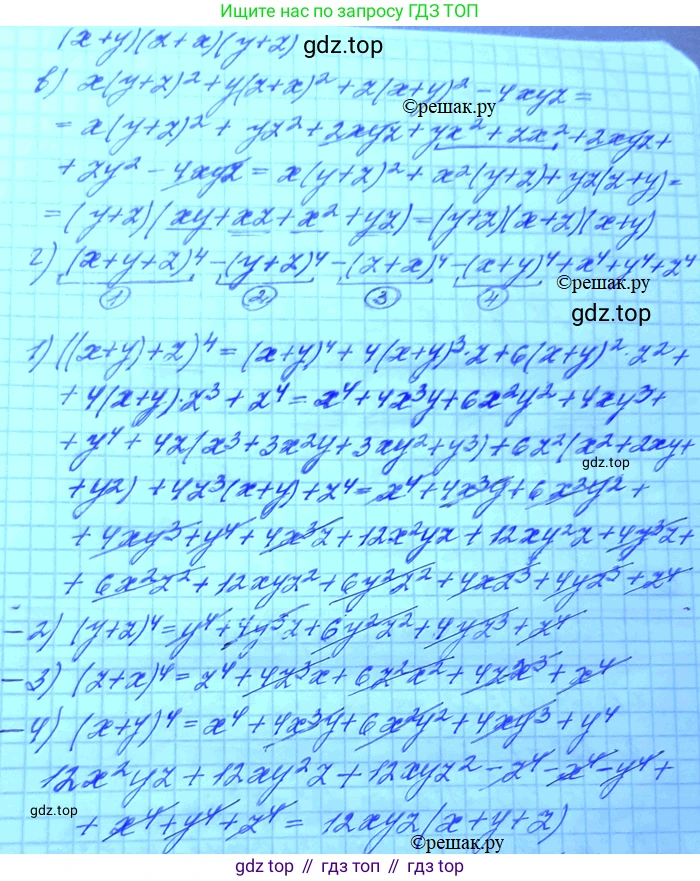 Ищите нас по запросу ГДЗ ТОП
(x+y)(z+x)(y+z)
gdz.top
в) x(y+z)²+y(z+x)²+z(x+y)²-4xyz=
©решак.ру
= x(y+z)² + yz²+2xyz+yx²+zx²+2xyz+
+ zy² - 4xyz = x(y+z)² + x²(y+z)+yz(z+y)=
=(y+z)(xy+xz+x²+yz)=(y+z)(x+z)(x+y)
г) (x+y+z)⁴-(y+z)⁴-(z+x)⁴-(x+y)⁴+x⁴+y⁴+z⁴
① ② ③ ④
©решак.ру
gdz.top
1) ((x+y)+z)⁴ = (x+y)⁴+4(x+y)³·z+6(x+y)²·z²+
+4(x+y)·z³+z⁴=x⁴+4x³y+6x²y²+4xy³+
+y⁴+4z(x³+3x²y+3xy²+y³)+6z²(x²+2xy+
gdz.top
+y2)+4z³(x+y)+z⁴=x⁴+4x³y+6x²y²+
+4xy³+y⁴+4x³z+12x²yz+12xy²z+4y³z+
+6x²z²+12xyz²+6y²z²+4xz³+4yz³+z⁴
-2) (y+z)⁴=y⁴+4y³z+6y²z²+4yz³+z⁴
-3) (z+x)⁴=z⁴+4z³x+6z²x²+4zx³+x⁴
-4) (x+y)⁴=x⁴+4x³y+6x²y²+4xy³+y⁴
12x²yz+12xy²z+12xyz²-z⁴-x⁴-y⁴+
gdz.top
+x⁴+y⁴+z⁴=12xyz(x+y+z)
©решак.ру
gdz.top // гдз топ // gdz.top